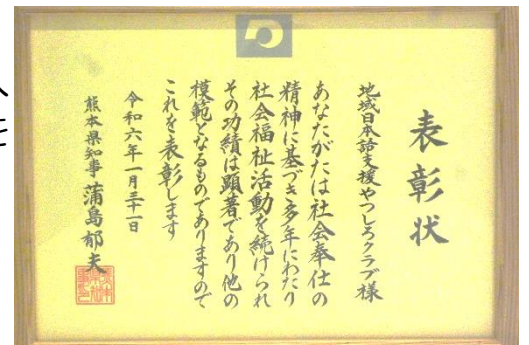 表彰状
地域日本語支援やつしろクラブ様
あなたがたは社会奉仕の
精神に基づき多年にわたり
社会福祉活動を続けられ
その功績は顕著であり他の
模範となるものでありますので
これを表彰します
令和六年一月三十一日
熊本県知事 蒲島郁夫